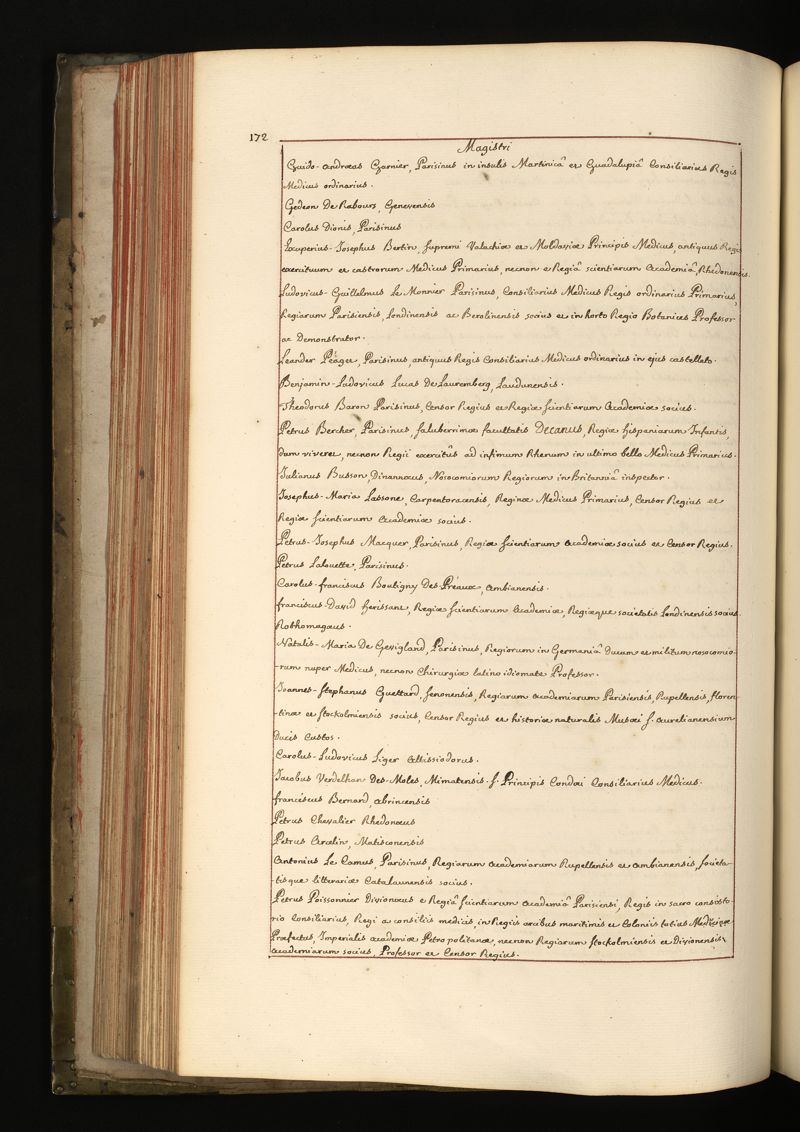 172
Magistri
Guido-Andræas Garnier, Parisinus in insulis Martinicâ et Guadalupiâ Consiliarius Regis
Medicus ordinarius.
Gedeon De Rabours, Genevensis
Carolus Dionis, Parisinus
Exuperius-Josephus Bertin, supremi Valachiæ et Moldaviæ Principis Medicus, antiquus Regii
exercituum et castrorum Medicus Primarius, necnon e Regiâ scientiarum Academiâ, Rhedonensis.
Ludovicus-Guillelmus Le Monnier Parisinus, Consiliarius Medicus Regis ordinarius Primarius,
Regiarum Parisiensis, Londinensis ac Berolinensis socius et in horto Regio Botanices Professor
ac Demonstrator.
Leander Peäget, Parisinus, antiquus Regis Consiliarius Medicus ordinarius in ejus castellato.
Benjamin-Ludovicus Lucas De Lauremberg, Laudunensis.
Theodorus Baron Parisinus, Censor Regius et Regiæ scientiarum Academiæ socius.
Petrus Bercher, Parisinus, saluberrimæ facultatis Decanus, Regiæ hispaniarum Infantis,
dum viveret, necnon Regii exercitûs ad infimum Rhenum in ultimo bello Medicus Primarius.
Julianus Busson, Dinannæus, Nosocomiorum Regiorum in Britanniâ inspector.
Josephus-Maria Lassone, Carpentoracensis, Reginæ Medicus Primarius, Censor Regius et
Regiæ scientiarum Academiæ socius.
Petrus-Josephus Macquer, Parisinus, Regiæ scientiarum Academiæ socius et Censor Regius.
Petrus Lalouette, Parisinus.
Carolus-franciscus Boutigny Des-Préaux, Ambianensis.
franciscus-David herissant, Regiæ scientiarum Academiæ, Regiæque societatis Londinensis socius
Rothomagæus.
Natalis-Maria De Gevigland, Parisinus, Regiorum in Germaniâ Ducum et militum nosocomio-
-rum nuper Medicus, necnon Chirurgiæ latino idiomate Professor.
Joannes-Stephanus Guettard, senonensis, Regiarum academiarum Parisiensis, Rupellensis, floren-
-tinæ et stockolmiensis socius, Censor Regius et historiæ naturalis Musæi S. Aurelianensium
Ducis Custos.
Carolus-Ludovicus Liger Altissiodorus.
Jacobus Verdelhan Des-Moles, Mimatensis. S. Principis Condæi Consiliarius Medicus.
franciscus Bernard, Abrincensis
Petrus Chevalier Rhedonæus
Petrus Arcelin, Matisconensis
Antonius Le Camus, Parisinus, Regiarum academiarum Rupellensis et Ambianensis, societa-
-tisque litterariæ Catalaunensis socius.
Petrus Poissonnier Divionæus e Regiâ scientiarum Academiâ Parisiensi, Regis in sacro consisto-
rio Consiliarius, Regi a consiliis medicis, in Regiis arcibus maritimis et Coloniis totius Medicinæ
Præfectus, Imperialis academiæ Petropolitanæ, necnon Regiarum stockolmiensis et Divionensis
academiarum socius, Professor et Censor Regius.